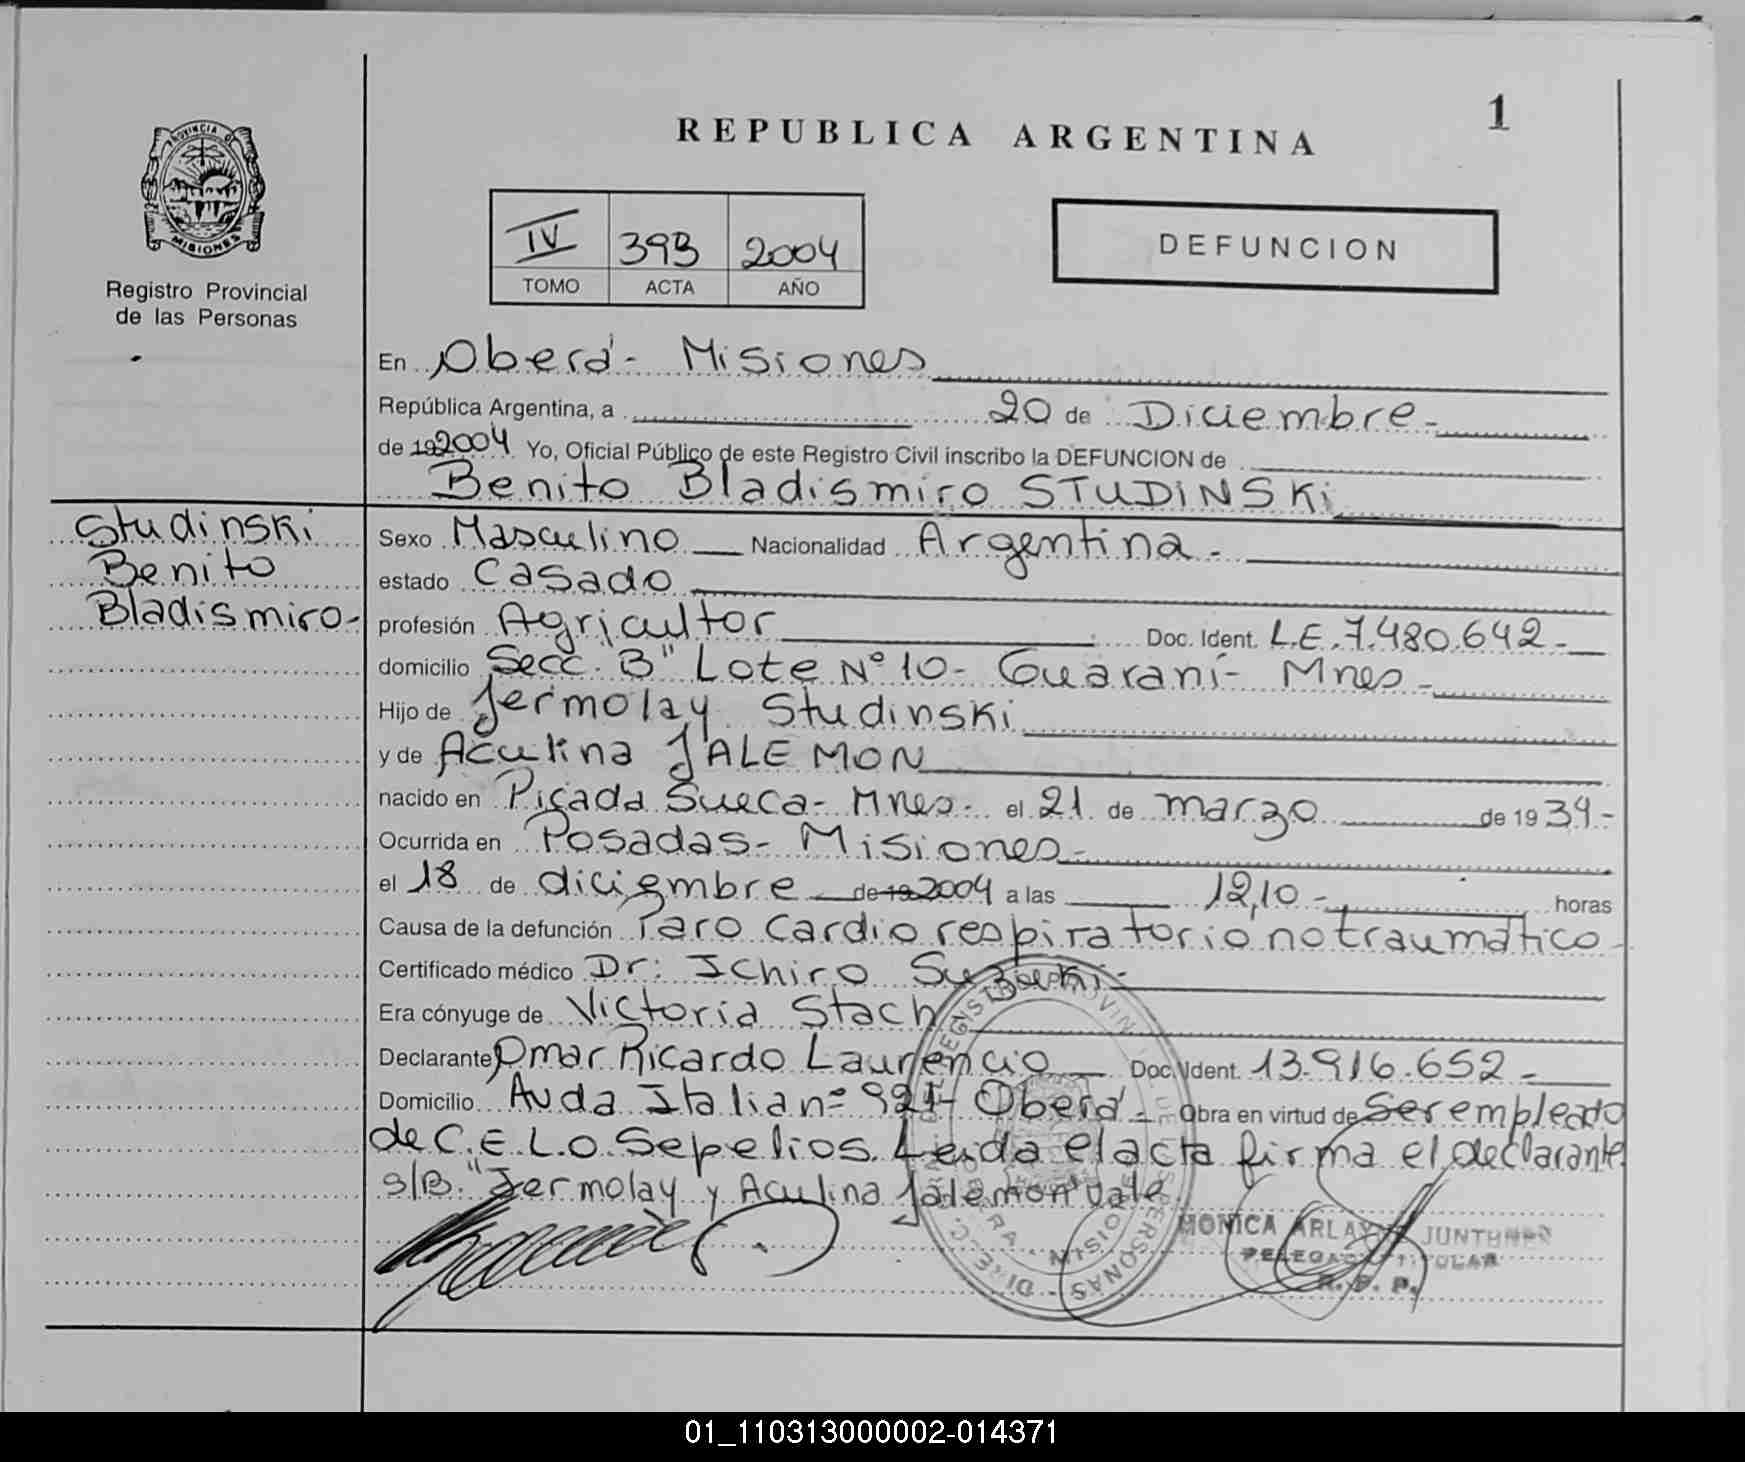 1
REPUBLICA ARGENTINA
PROVINCIA DE
MISIONES
Registro Provincial
de las Personas
IV 393 2004
TOMO ACTA AÑO
DEFUNCION
En Oberá - Misiones
República Argentina, a 20 de Diciembre -
de 19 2004 Yo, Oficial Público de este Registro Civil inscribo la DEFUNCION de
Benito Bladismiro STUDINSKi
Studinski
Benito
Bladismiro -
Sexo Masculino Nacionalidad Argentina -
estado Casado
profesión Agricultor Doc. Ident. L.E. 7.480.642 -
domicilio Secc. "B" Lote Nº 10 - Guaraní - Mnes -
Hijo de Jermolay Studinski
y de Aculina JALEMON
nacido en Picada Sueca - Mnes - el 21 de marzo de 19 39 -
Ocurrida en Posadas - Misiones -
el 18 de diciembre de 19 2004 a las 12,10 - horas
Causa de la defunción Paro Cardio respiratorio no traumático -
Certificado médico Dr: Ichiro Suzuki -
Era cónyuge de Victoria Stach
Declarante Omar Ricardo Laurencio Doc. Ident. 13.916.652 -
Domicilio Avda Italia nº 921 - Oberá - Obra en virtud de Ser empleado
de C.E.L.O. Sepelios. Leida el acta firma el declarante
S/B: "Jermolay y Aculina Jalemon Vale
MONICA ARLAY JUNT
DELEGADA TITULAR
R. P. P.
01_110313000002-014371